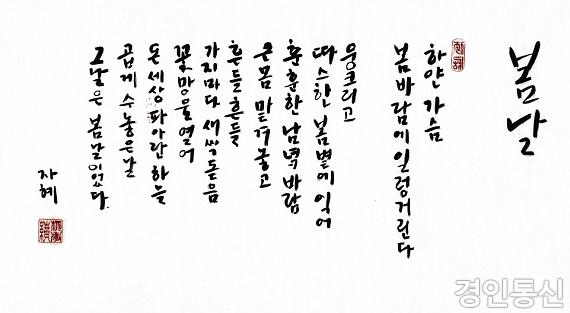 봄날
하얀 가슴
봄바람에 일렁거린다
웅크리고
따스한 봄볕에 익어
훈훈한 남녘바람
온몸 맡겨놓고
흔들흔들
가지마다 새싹돋음
꽃망울 열어
온세상 파아란 하늘
곱게 수놓은날
그날은 봄날이었다.
자혜
경인통신